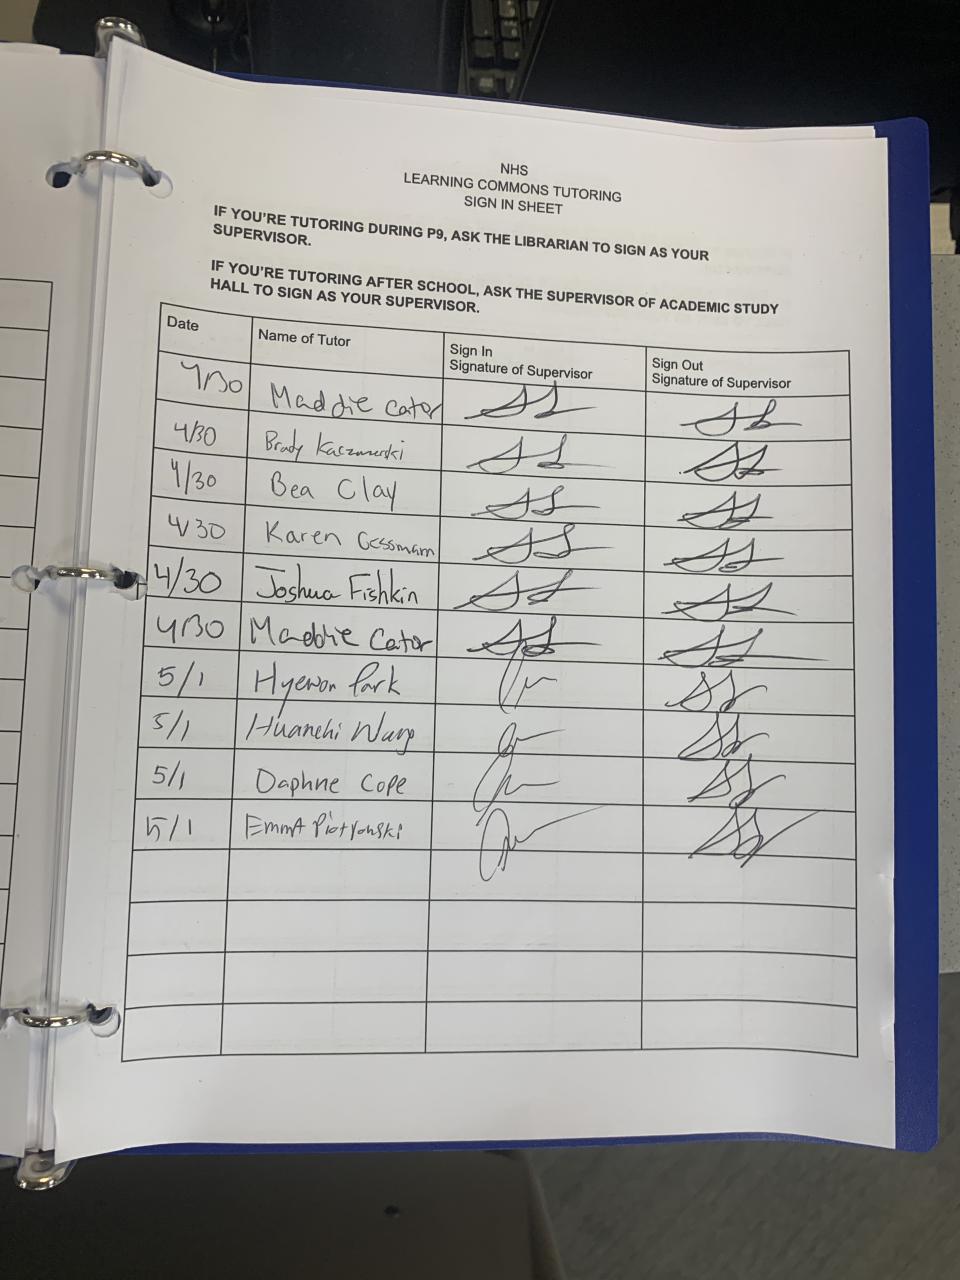 NHS
LEARNING COMMONS TUTORING
SIGN IN SHEET
IF YOU'RE TUTORING DURING P9, ASK THE LIBRARIAN TO SIGN AS YOUR
SUPERVISOR.
IF YOU'RE TUTORING AFTER SCHOOL, ASK THE SUPERVISOR OF ACADEMIC STUDY
HALL TO SIGN AS YOUR SUPERVISOR.
Date Name of Tutor Sign In Sign Out
Signature of Supervisor Signature of Supervisor
4/30 Maddie Cator
4/30 Brady Kaczmarski
4/30 Bea Clay
4/30 Karen Gessmam
4/30 Joshua Fishkin
4/30 Maddie Cator
5/1 Hyewon Park
5/1 Huanchi Wang
5/1 Daphne Cope
5/1 Emma Piotrowski